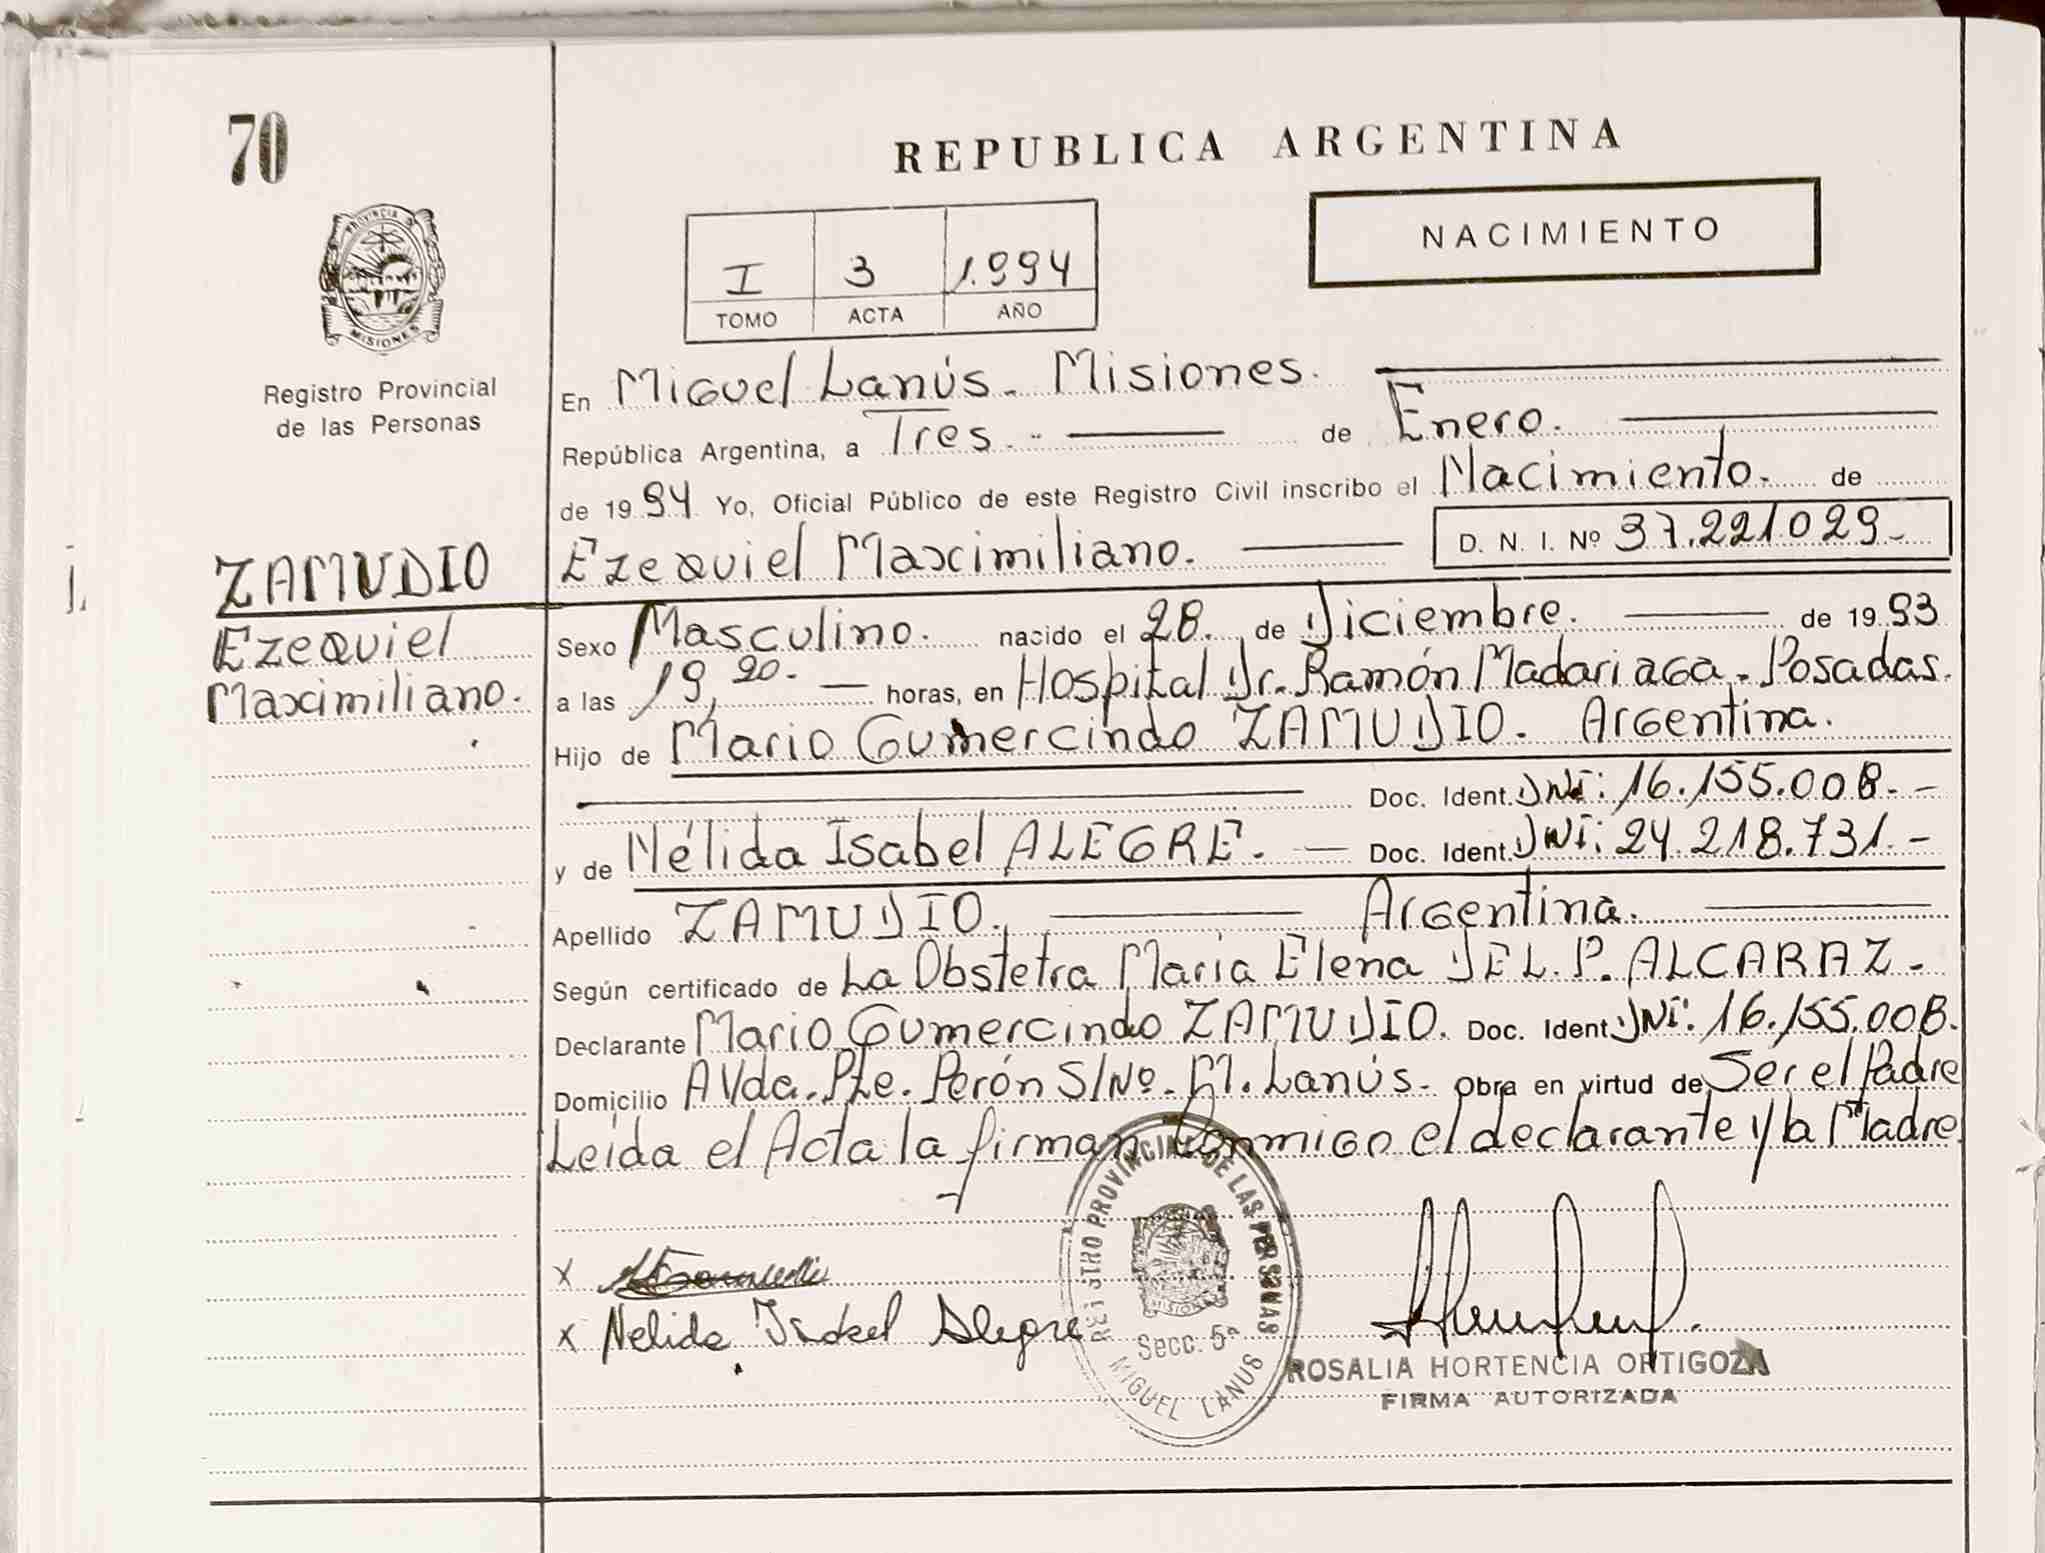 70
REPUBLICA ARGENTINA
NACIMIENTO
I 3 1.994
TOMO ACTA AÑO
PROVINCIA DE MISIONES
Registro Provincial
de las Personas
En Miguel Lanús. Misiones.
República Argentina, a Tres.- de Enero.
de 1994 Yo, Oficial Público de este Registro Civil inscribo el Nacimiento. de
ZAMUDIO
Ezequiel
Maximiliano.
Ezequiel Maximiliano. D. N. I. Nº 37.221.029-
Sexo Masculino. nacido el 28. de Diciembre. de 1993
a las 19,20.- horas, en Hospital Dr. Ramón Madariaga. Posadas.
Hijo de Mario Gumercindo ZAMUDIO. Argentina.
Doc. Ident. DNI: 16.155.008.-
y de Nélida Isabel ALEGRE. - Doc. Ident. DNI: 24.218.731.-
Apellido ZAMUDIO. Argentina.
Según certificado de La Obstetra Maria Elena DEL.P. ALCARAZ.
Declarante Mario Gumercindo ZAMUDIO. Doc. Ident. DNI: 16.155.008.
Domicilio AVda. Pte. Perón S/Nº. M. Lanús. Obra en virtud de Ser el Padre
Leída el Acta la firman Conmigo el declarante y la Madre
x
x Nelida Isabel Alegre
REGISTRO PROVINCIAL DE LAS PERSONAS
MISIONES
Secc. 5ª
MIGUEL LANUS
ROSALIA HORTENCIA ORTIGOZA
FIRMA AUTORIZADA